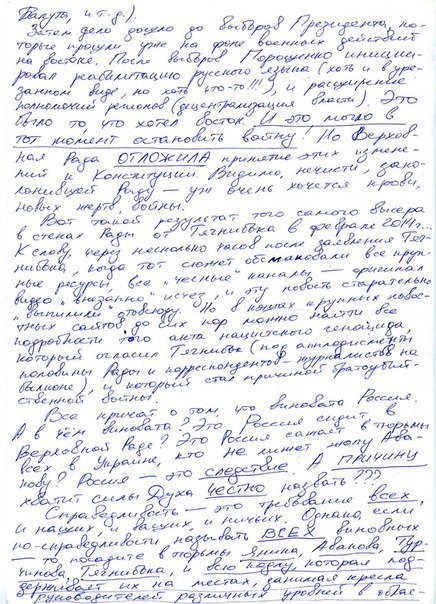 Балута, и т.д.).
Затем дело дошло до выборов Президента, ко-
торые прошли уже на фоне военных действий
на востоке. После выборов Порошенко иниции-
ровал реабилитацию русского языка (хоть и в уре-
занном виде, но хоть что-то!!!), и расширение
полномочий регионов (децентрализация власти). Это
было то что хотел восток. И это могло в
тот момент остановить войну! Но Верхов-
ная Рада ОТЛОЖИЛА принятие этих измене-
ний к Конституции. Видимо, нечисти, запо-
лонившей Раду — уж очень хочется крови,
новых жертв, войны.
Вот такой результат того самого высера
в стенах Рады от Тягнибока в феврале 2014г...
К слову, через несколько часов после заявления Тяг-
нибока, когда тот сюжет обсмаковали все круп-
ные ресурсы, все "честные" каналы — оригинал
видео "внезапно" исчез, и эту новость старательно
"выпилили" отовсюду. Но в кэшах крупных новос-
тных сайтов, до сих пор можно найти все
подробности того акта нацистского геноцида,
который огласил Тягнибок (под аплодисменты
половины Рады и корреспондентов-журналистов на
балконе), и который стал причиной братоубий-
ственной войны.
Все кричат о том, что виновата Россия.
А в чём виновата? Это Россия сидит в
Верховной Раде? Это Россия сажает в тюрьмы
всех в Украине, кто не лижет жопу Ава-
кову? Россия — это следствие. А ПРИЧИНУ
хватит силы Духа ЧЕСТНО назвать???
Справедливость — это требование всех,
и наших, и ваших, и ничьих. Однако, если
по-справедливости называть ВСЕХ виновных
— то посадите в тюрьмы Яныка, Авакова, Тур-
чинова, Тягнибока, и всю кодлу, которая под-
держивает их на местах, занимая кресла
руководителей различных уровней в облас-